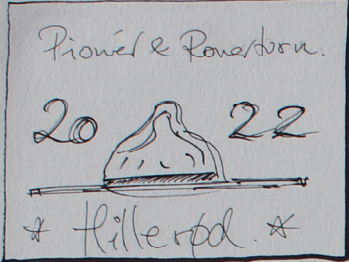 Pionér & Roverturn.
20 22
* Hillerød. *